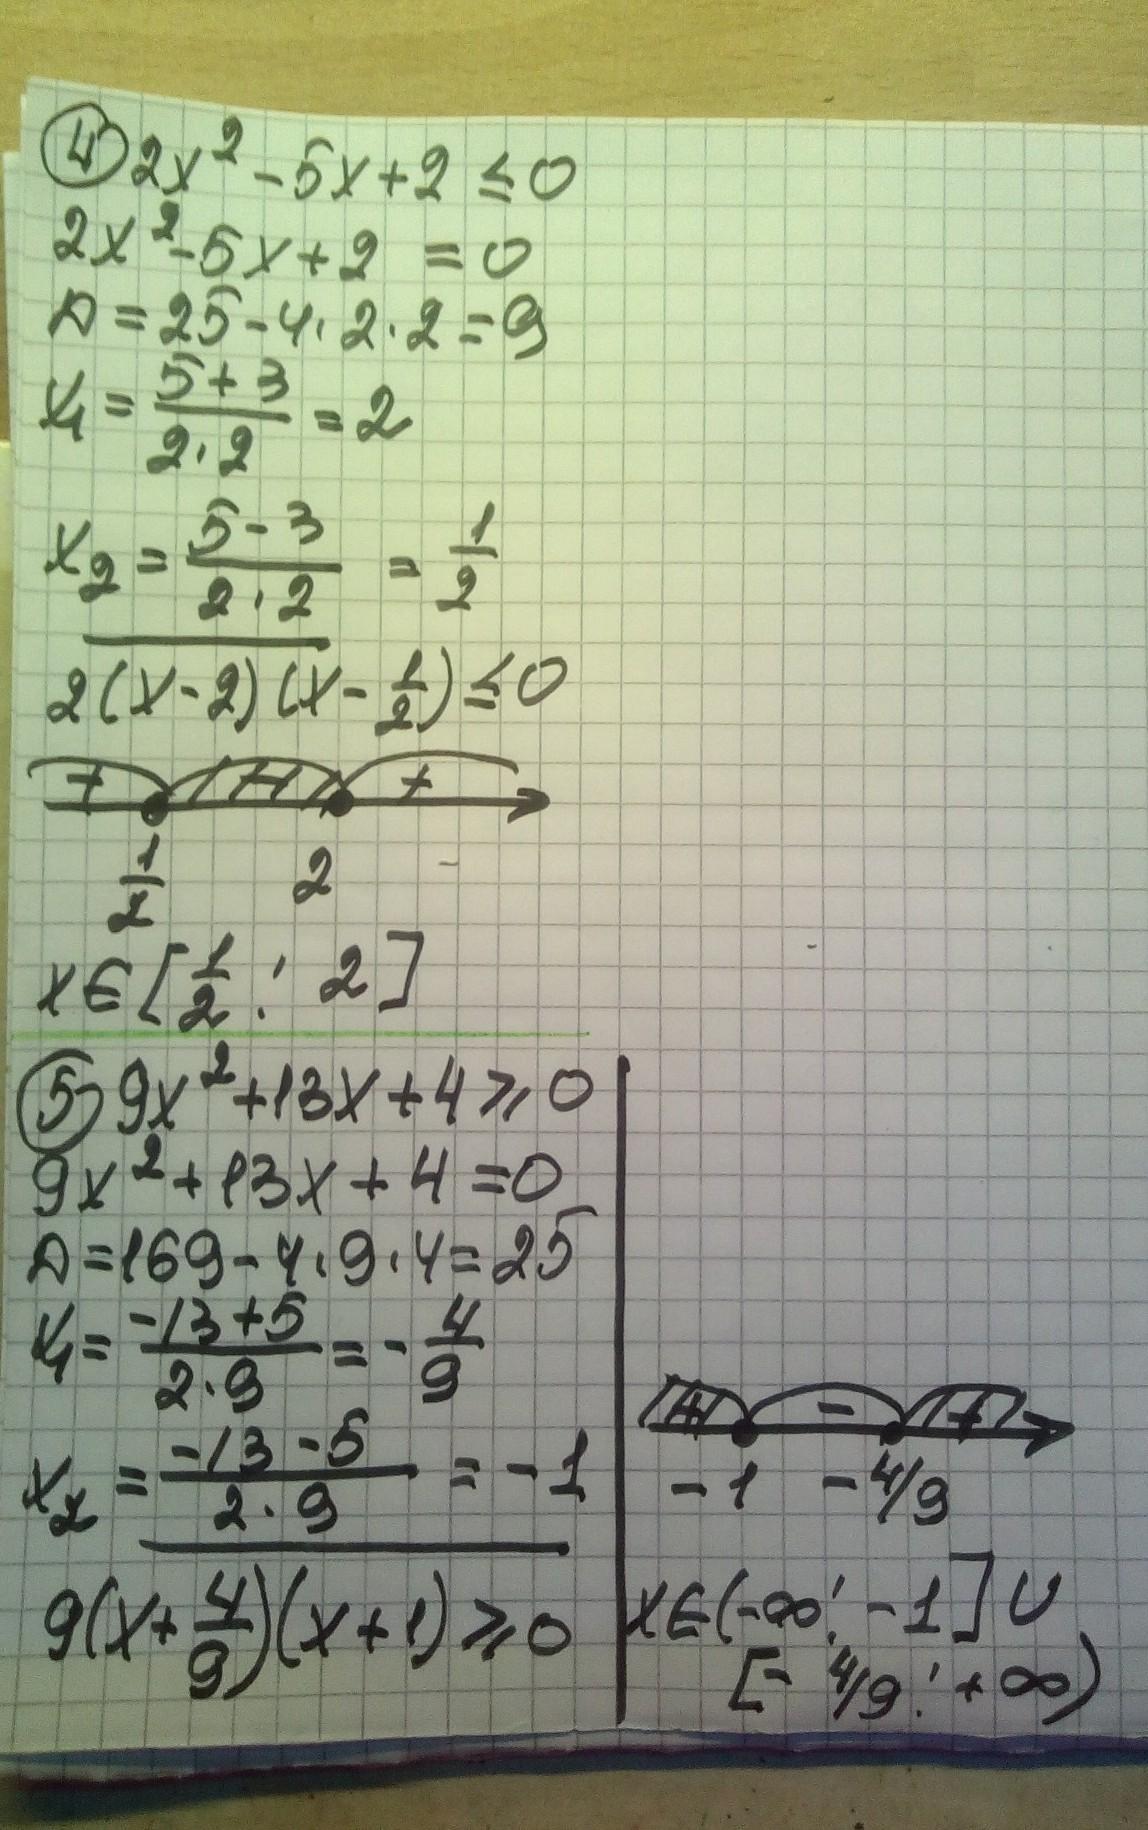 ④ 2x² - 5x + 2 ≤ 0
2x² - 5x + 2 = 0
D = 25 - 4 · 2 · 2 = 9
x₁ = (5 + 3)/(2 · 2) = 2
x₂ = (5 - 3)/(2 · 2) = 1/2
2(x - 2)(x - 1/2) ≤ 0
+ - +
1/2 2
x ∈ [1/2 ; 2]
⑤ 9x² + 13x + 4 ⩾ 0
9x² + 13x + 4 = 0
D = 169 - 4 · 9 · 4 = 25
x₁ = (-13 + 5)/(2 · 9) = -4/9
x₂ = (-13 - 5)/(2 · 9) = -1
9(x + 4/9)(x + 1) ⩾ 0
+ - +
-1 -4/9
x ∈ (-∞ ; -1] ∪
[-4/9 ; +∞)